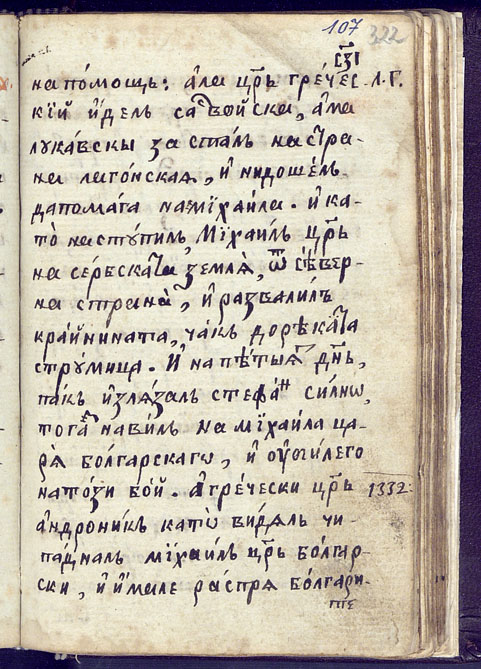 107 322
сѯ҃і
на по́мощь: а҆ла цр҃ь гре́чес- л.г.
кїй и҆де́ль са вои́ска, а҆ма
лука́вски за ста́лъ на стра-
на лаго́нская, и҆ нидоше́лъ
да пома́га на мїхаи́ла. и҆ ка-
то̀ на ступи́лъ мїхаи́лъ цр҃ь
на се́рбскаѧта землѧ̀, ѿ сѣ́вер-
на страна̀, и҆ развали́лъ
кра́йнината, ча́къ до рѣка́та
стру́мица. и҆ на пѣ́тыѧт дн҃ь,
па́къ и҆зля́залъ стефа́н си́лнѡ,
тога нави́лъ на мїхаи́ла ца-
рѧ̀ болга́рскагѡ, и҆ ᲂу҆би́лего
на то́зи бо́й. а҆ гре́чески цр҃ь 1332:
а҆ндрони́къ като̀ ви́дялъ чи-
па́дналъ мїхаи́лъ цр҃ь бо́лгар-
ски, и҆ и҆́мале ра́спря бо́лгари-
те